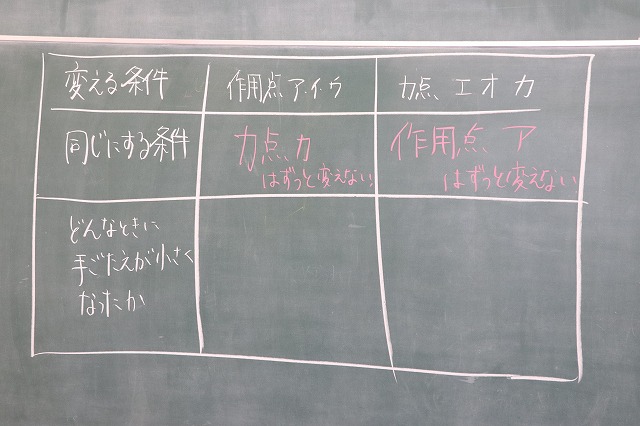 変える条件 作用点 ア・イ・ウ 力点、エ オ カ
同じにする条件 力点、カ 作用点、ア
はずっと変えない はずっと変えない
どんなときに
手ごたえが小さく
なったか